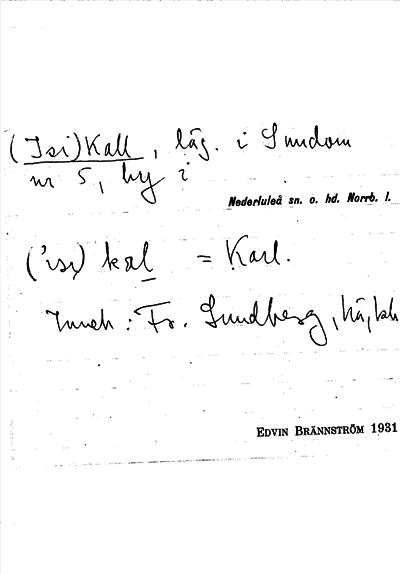 (Isi)Kall, läg. i Sundom
nr 5, by i
Nederluleå sn. o. hd. Norrb. l.
('isi) kal = Karl.
: Fr. Sundberg,
EDVIN BRÄNNSTRÖM 1931